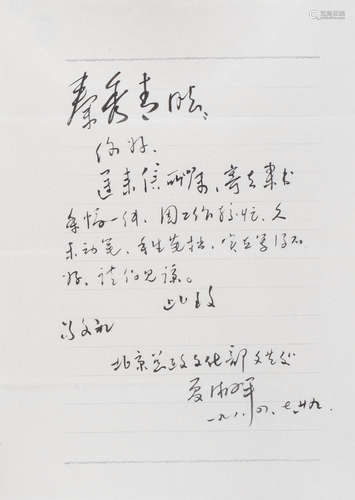 秦秀青同志:
你好。
遵来信所嘱,寄去隶书
条幅一件,因工作较忙,久
未动笔,手生笔拙,实在写得不
好,请你见谅。
此致
敬礼
北京总政文化部文艺处
夏湘平
一九八〇.七.廿九.